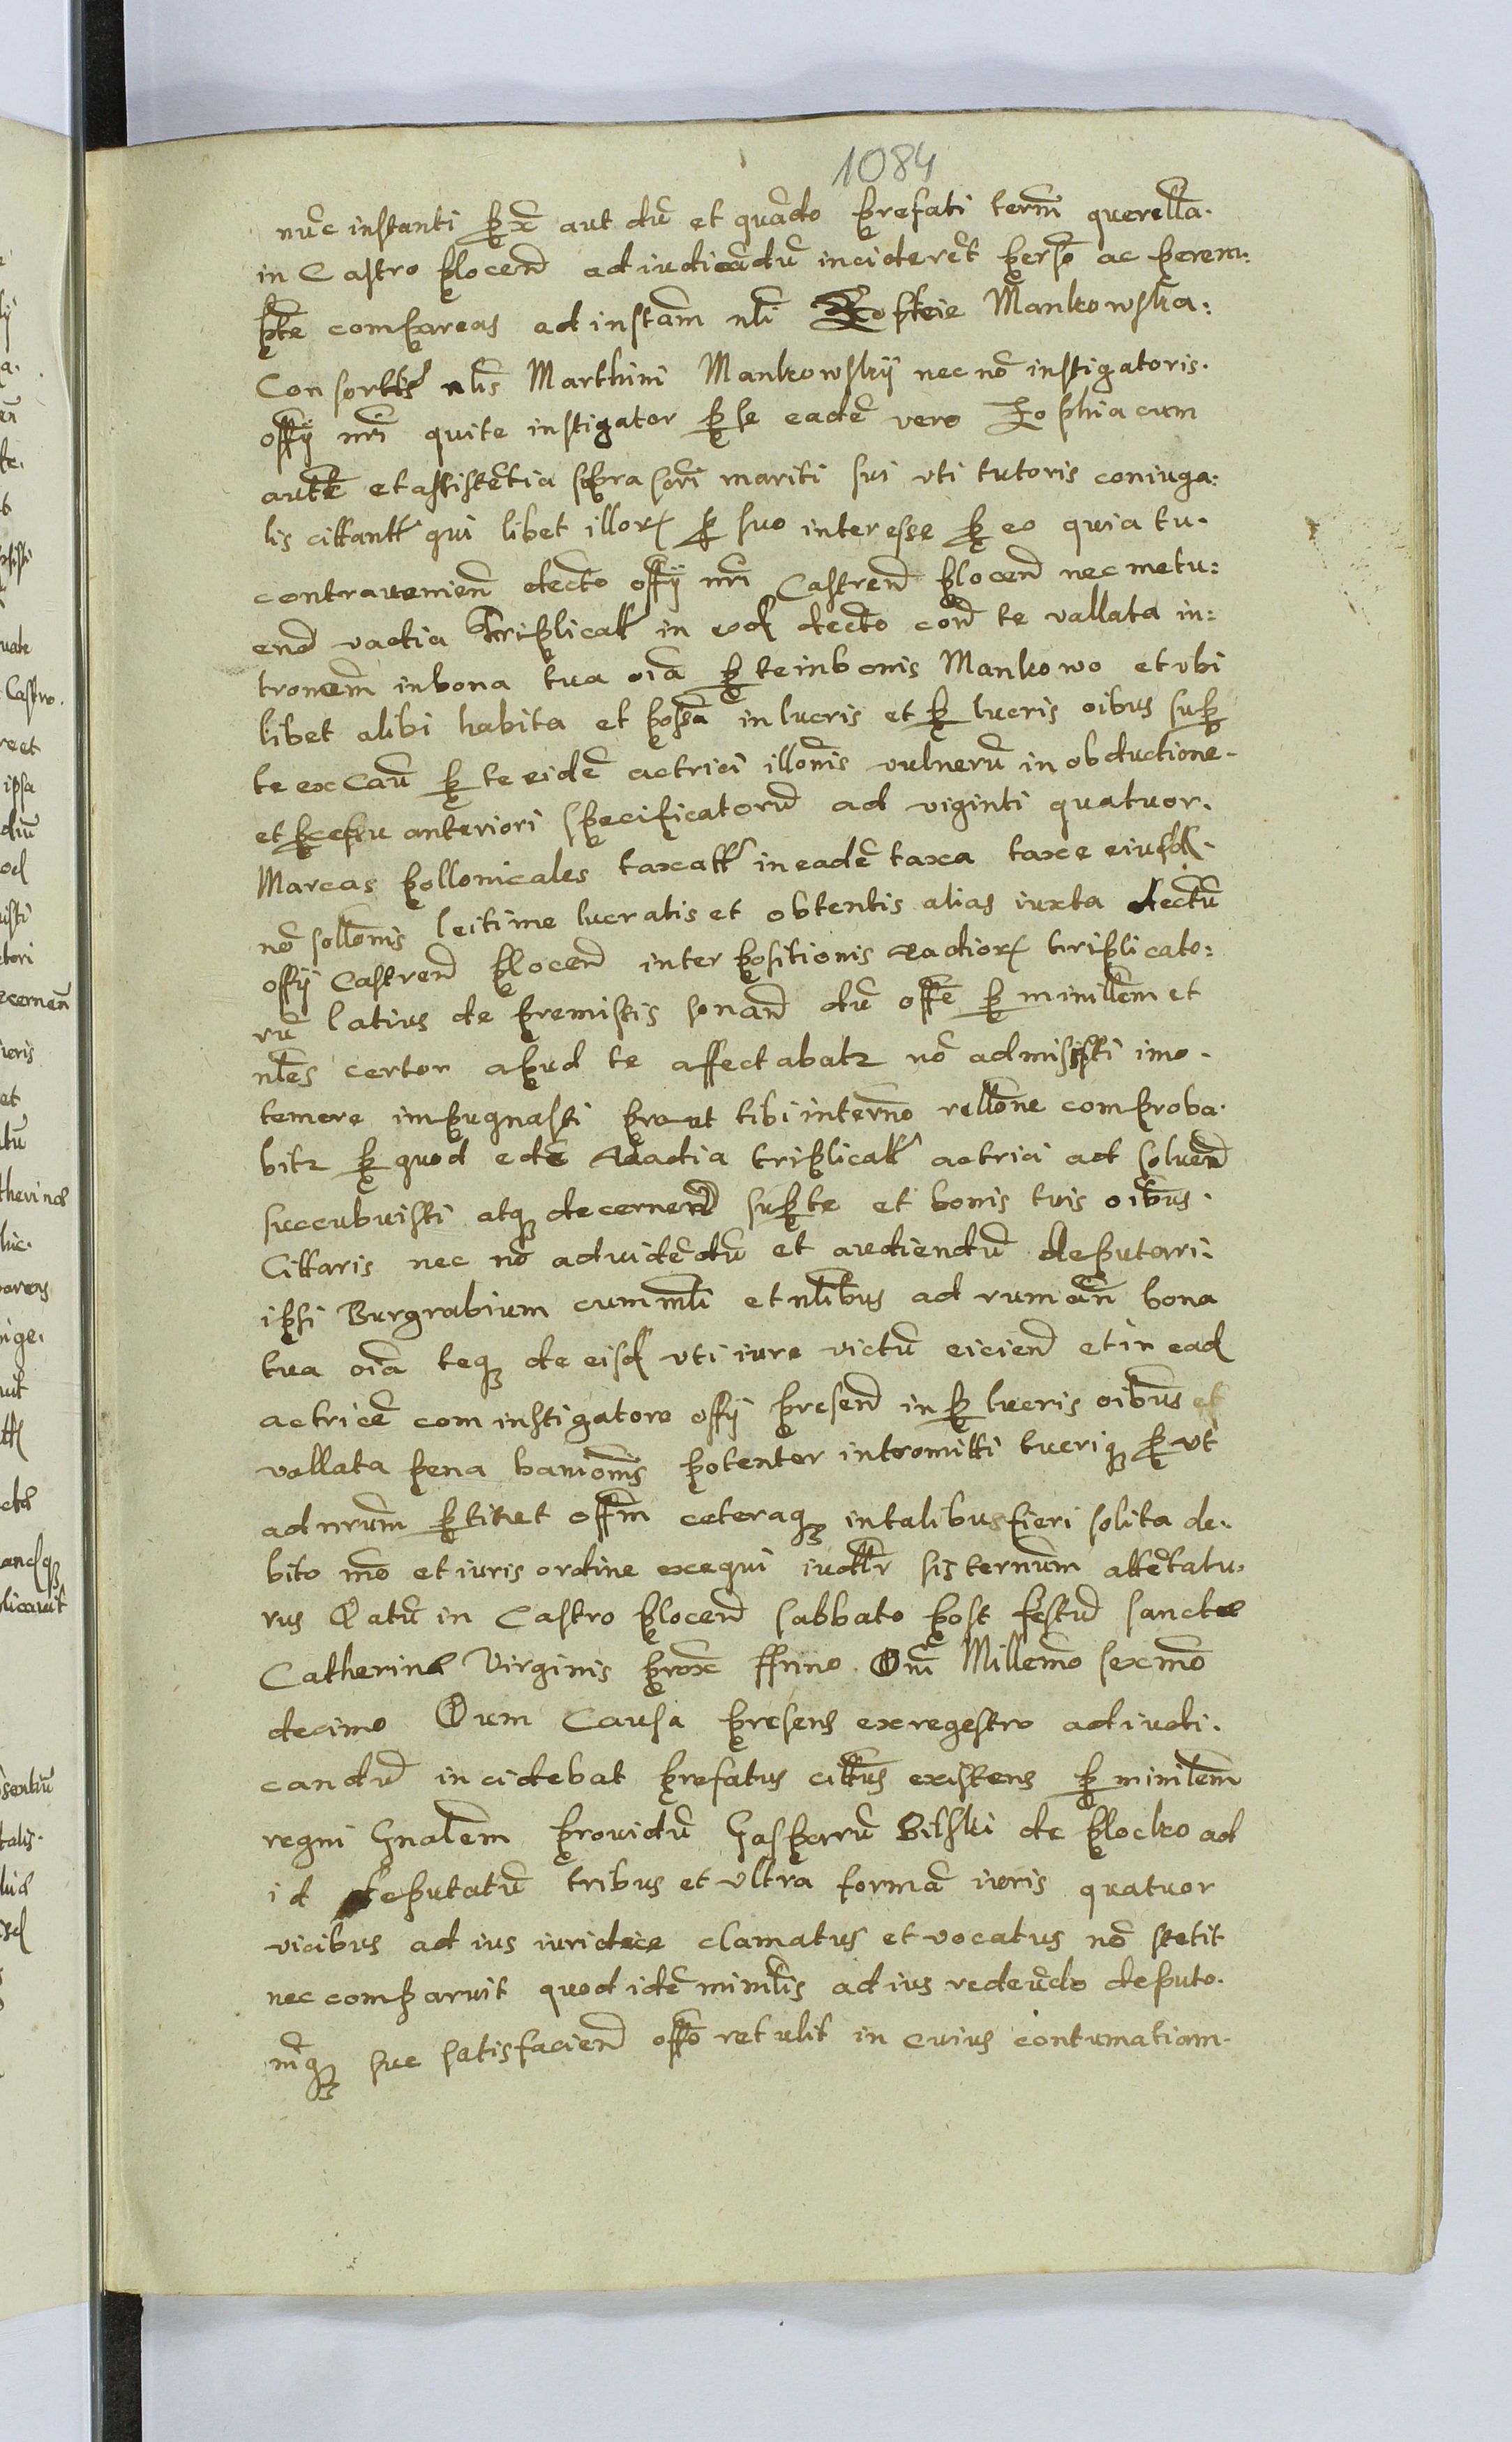 1084
nũc instanti ꝑx̃ aut dũ et quãdo prefati term̃ querella.
in Castro plocen̄ ad iudicãdũ inciderẽt perso͂ ac perem:
pt̃e compareas ad instam̃ nl̃i Zophie Mankowska:
Consortis nl̃is Marthini Mankowskÿ nec nõ instigatoris.
offÿ nr̃i qui te instigator ꝑ se eadẽ vero Zophia cum
aut̃te et assistẽtia supra scri̇̃ mariti sui uti tutoris coniuga:
lis cittantr̃ qui libet illorꝝ ꝓ suo interesse ꝑ eo quia tu.
contravenien̄ decto͂ offÿ nr̃i Castren̄ plocen̄ nec metu:
en̄d vadia triplicatr̃ in eod decto͂ con̄ te vallata in:
tronem̃ in bona tua oĩa ꝑ te in bonis Mankowo et ubi
libet alibi habita et possa͂ in lucris et ꝑ lucris oĩbus suꝑ
te ex Cau͂ ꝑ te eidẽ actrici illoñis vulnerũ in obductione.
et ꝓcessu anteriori specificatorũ ad viginti quatuor.
Marcas pollonicales taxatr̃ in eadẽ taxa taxe eiusd.
nõ solloñis leitime lucratis et obtentis alias iuxta dectũ
offÿ Castren̄ plocen̄ interpositionis vadiorꝝ triplicato:
rũ latius de premissis sonan̄ dũ offe͂ ꝑ minil̃em et
nl̃es certor apud te affectabatr nõ admisisti imo.
temere impugnasti prout tibi in termo͂ relloñe comproba.
bitr ꝑ quod ede͂ vadia triplicatr̃ actrici ad soluen̄
succubuisti atqꝫ decernen̄ suꝑ te et bonis tuis oĩbus.
Cittaris nec nõ ad vidẽdũ et audiendũ deputari.
ipsi Burgrabium cum ml̃i et nl̃ibus ad ruman̄ bona
tua oĩa teqꝫ de eisd uti iure victũ eicien̄ et in ead
actricẽ com instigatore offÿ presen̄ in ꝑ lucris oĩbus et
vallata pena banioñis potenter intromitti tueriqꝫ ꝓut
ad nrum̃ ꝑtinet offm̃ ceteraqꝫ in talibus fieri solita de.
bito mo͂ et iuris ordine exequi iudr̃ sis ternum̃ attẽtatu.
rus Datũ in Castro plocen̄ sabbato post festũ sancte
Catherine Virginis prox̃ Anno Dni͂ Millemo͂ sexmo͂
decimo Dum Causa presens ex regestro ad iudi.
candũ incidebat prefatus citt̃us existens ꝑ minil̃em
regni Gnal̃em providũ Gasparũ Bilski de plocko ad
id deputatũ tribus et ultra formã iuris quatuor
vicibus ad ius iuridice clamatus et vocatus nõ stetit
nec comparuit quod idẽ minil̃is ad ius redeũdo deputo.
niqꝫ sue satisfacien̄ offo͂ retulit in cuius contumatiam.